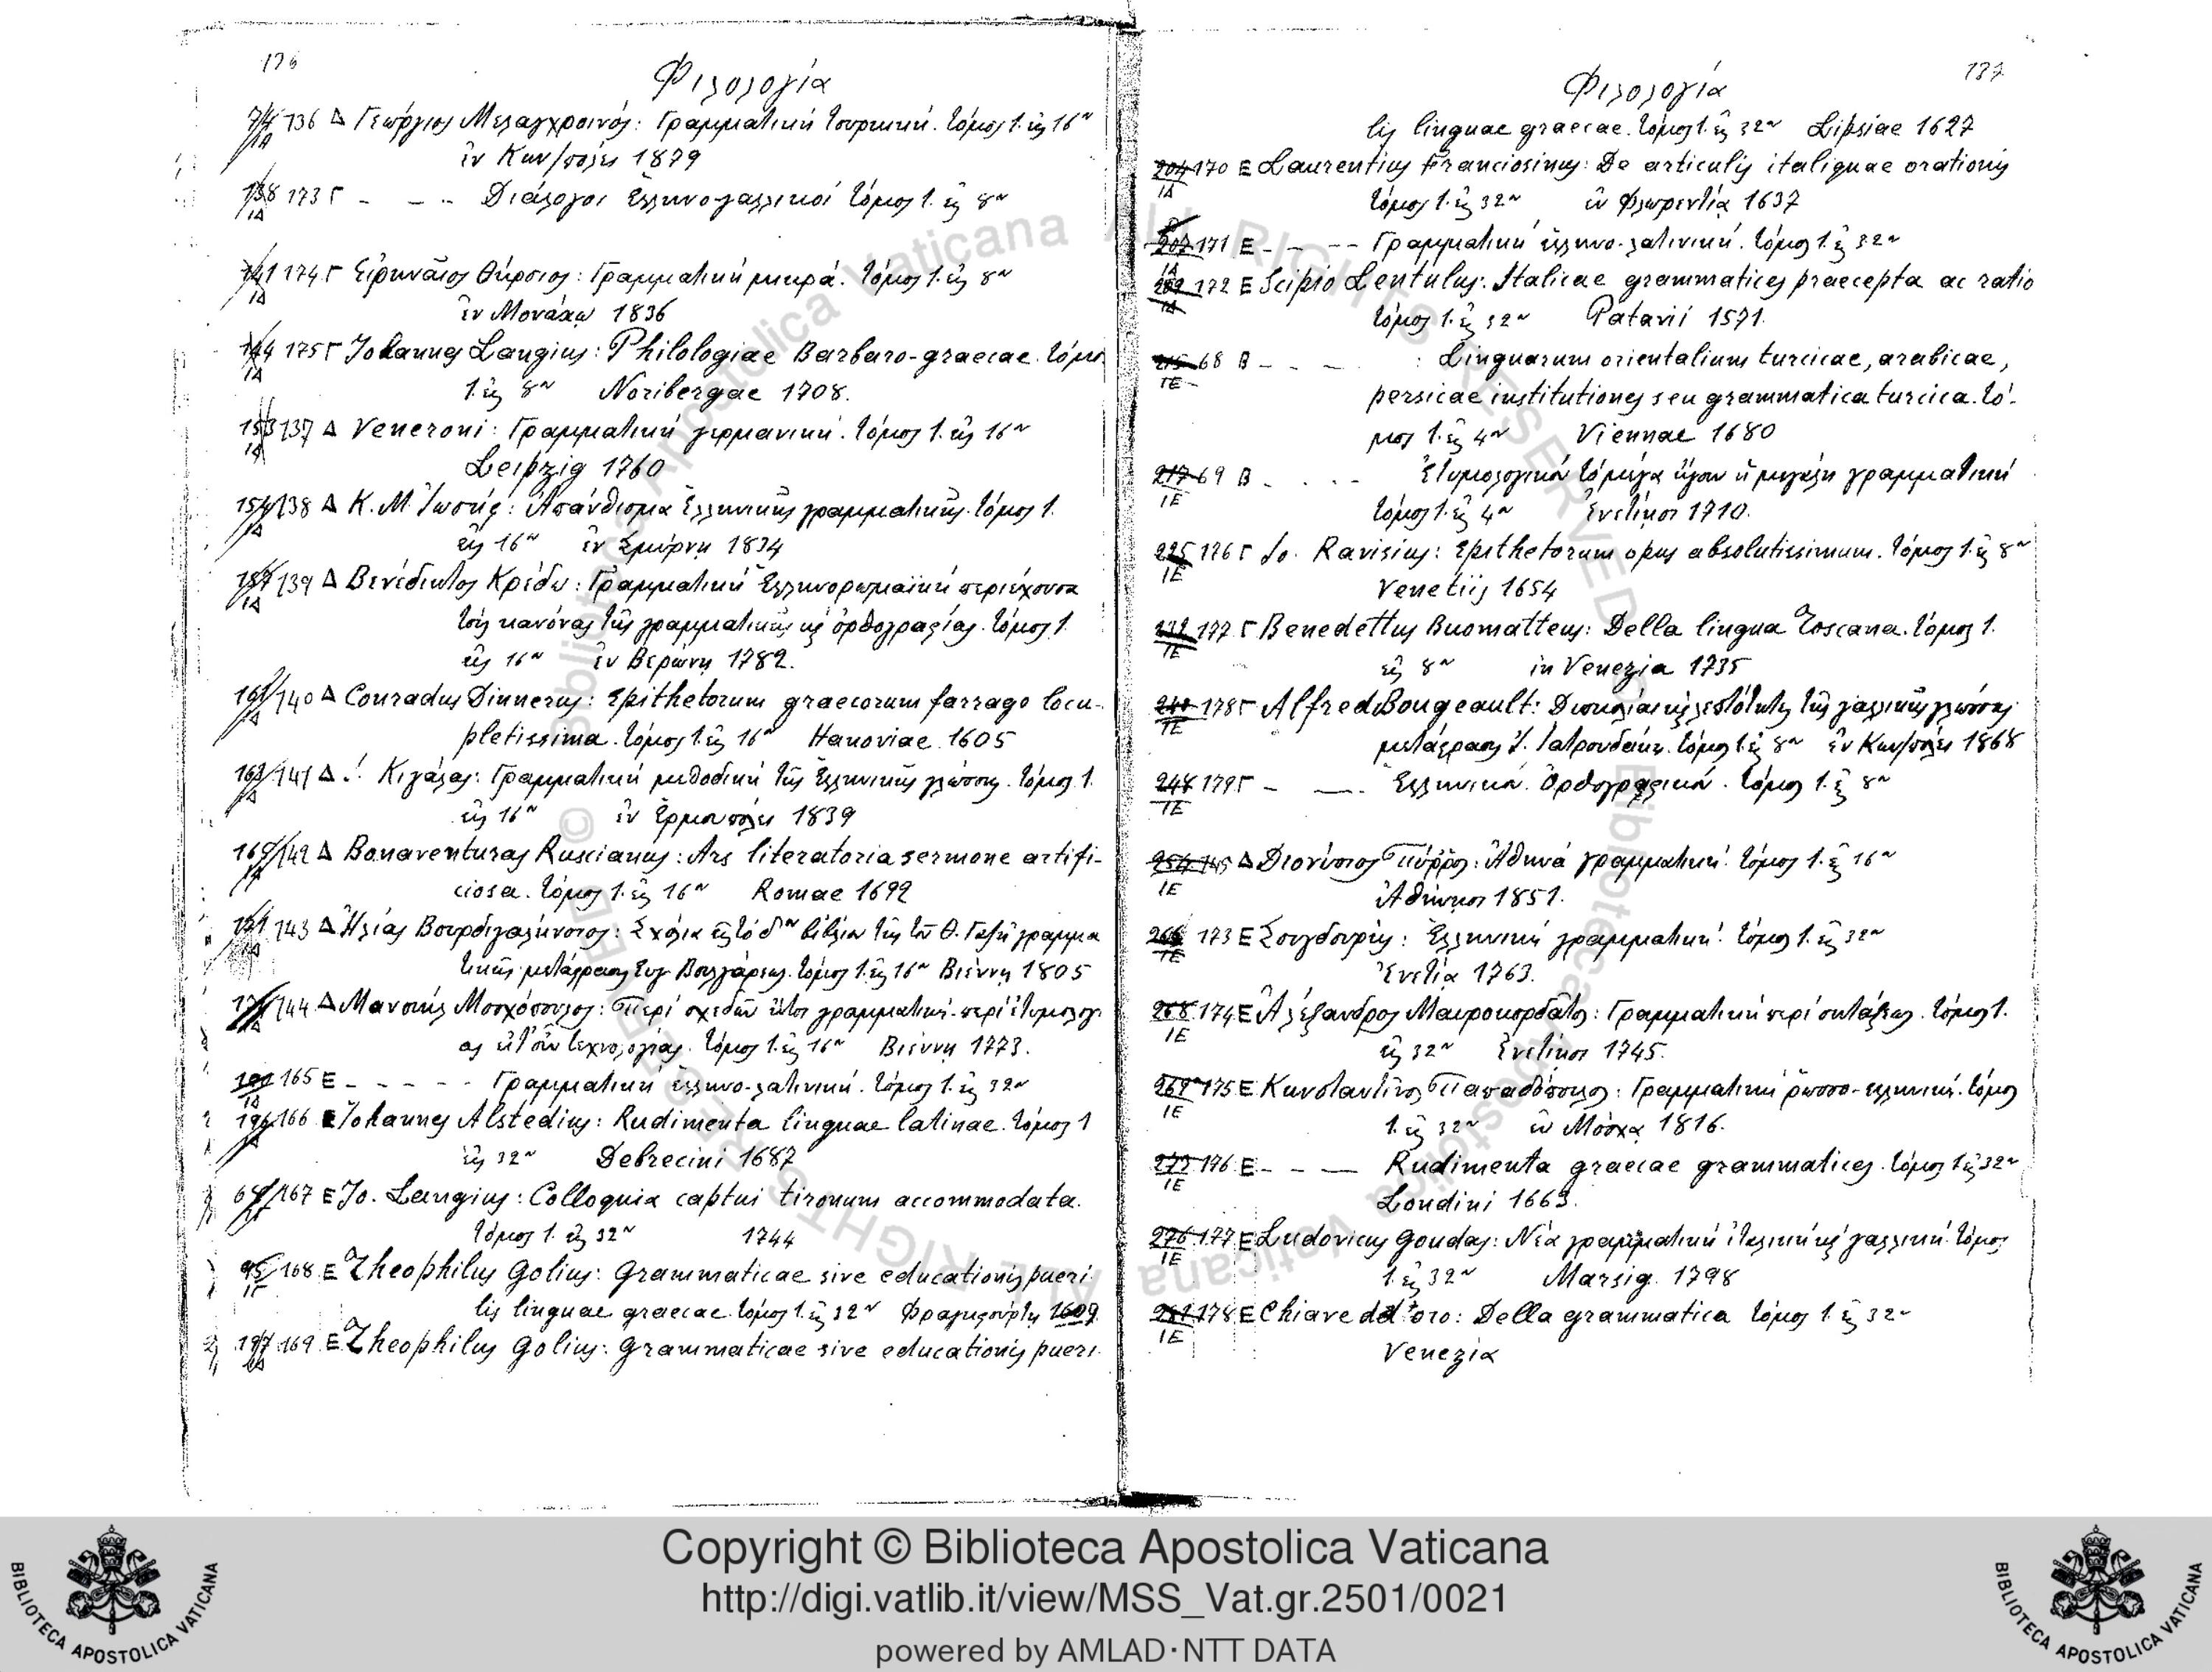 136
Φιλολογία
74/ΙΔ 136 Δ Γεώργιος Μελαγχροινός: Γραμματική τουρκική. τόμος 1. εἰς 16ον
ἐν Κων/πόλει 1879
138/ΙΔ 173 Γ - - - Διάλογοι ἑλληνογαλλικοί τόμος 1. εἰς 8ον
141/ΙΔ 174 Γ Εἰρηναῖος Θύρσιος: Γραμματική μικρά. τόμος 1. εἰς 8ον
ἐν Μονάχῳ 1836
144/ΙΔ 175 Γ Johannes Langius: Philologiae Barbaro-graecae. τόμο
1. εἰς 8ον Noribergae 1708.
153/ΙΔ 137 Δ Veneroni: Γραμματική γερμανική. τόμος 1. εἰς 16ον
Leipzig 1760
154/ΙΔ 138 Δ Κ. Μ. Ἰωσήφ: Ἀπάνθισμα Ἑλληνικῆς γραμματικῆς. τόμος 1.
εἰς 16ον ἐν Σμύρνῃ 1834
139 Δ Βενέδικτος Κρέδω: Γραμματική Ἑλληνορωμαϊκή περιέχουσα
τούς κανόνας τῆς γραμματικῆς κ̀ ὀρθογραφίας. τόμος 1.
εἰς 16ον ἐν Βερώνῃ 1782.
140 Δ Conradus Dinnerus: Epithetorum graecorum farrago locu-
pletissima. τόμος 1. εἰς 16ον Hanoviae 1605
141 Δ Κιγάλας: Γραμματική μεθοδική τῆς Ἑλληνικῆς γλώσσης. τόμος 1.
εἰς 16ον ἐν Ἑρμουπόλει 1839
142 Δ Bonaventuras Ruscianus: Ars literatoria sermone artifi-
ciosa. τόμος 1. εἰς 16ον Romae 1692
143 Δ Ἠλίας Βουρδιγαλήνσιος: Σχόλια εἰς τό δον βιβλίον τῆς τοῦ Θ. Γαζῆ γραμμα
τικῆς μετάφρασις Εὐγ. Βουλγάρεως. τόμος 1. εἰς 16ον Βιέννῃ 1805
144 Δ Μανουήλ Μοσχόπουλος: Περί σχεδῶν ἤτοι γραμματική περί ἐτυμολογί
ας τεχνολογίας. τόμος 1. εἰς 16ον Βιέννῃ 1773.
165 Ε - - - - - Γραμματική ἑλληνο-λατινική. τόμος 1. εἰς 32ον
196/ΙΔ 166 Ε Johannes Alstedius: Rudimenta linguae latinae. τόμος 1
εἰς 32ον Debrecini 1687
167 Ε Jo. Langius: Colloquia captui tironum accommodata.
τόμος 1. εἰς 32ον 1744
95/ΙΓ 168 Ε Theophilus Golius: Grammaticae sive educationis pueri
lis linguae graecae τόμος 1. εἰς 32ον Φραγκφούρτῃ 1609
197/ΙΔ 169 Ε Theophilus Golius: Grammaticae sive educationis pueri
137
Φιλολογία
lis linguae graecae. τόμος 1. εἰς 32ον Lipsiae 1627
204/ΙΔ 170 Ε Laurentius Franciosinus: De articulis italiquae orationis
τόμος 1. εἰς 32ον ἐν Φλωρεντίᾳ 1637
207/ΙΔ 171 Ε - - - - Γραμματική ἑλληνο-λατινική. τόμος 1. εἰς 32ον
209/ΙΔ 172 Ε Scipio Lentulus: Italicae grammatices praecepta ac ratio
τόμος 1. εἰς 32ον Patavii 1571.
215/ΙΕ 68 Β - - - : Linguarum orientalium turcicae, arabicae,
persicae institutiones seu grammatica turcica. τό-
μος 1. εἰς 4ον Viennae 1680
217/ΙΕ 69 Β - - - - Ἐτυμολογικόν τό μέγα ἤγουν ἡ μεγάλη γραμματική
τόμος 1. εἰς 4ον Ἐνετίῃσι 1710.
225/ΙΕ 176 Γ Jo. Ravisius: Epithetorum opus absolutissimum. τόμος 1. εἰς 8ον
Venetiis 1654
232/ΙΕ 177 Γ Benedettus Buomatteus: Della lingua Toscana. τόμος 1.
εἰς 8ον in Venezia 1735
240/ΙΕ 178 Γ Alfred Bougeault: Δυσκολίαι κ̀ λεπτότητες τῆς γαλλικῆς γλώσσης
μετάφρασις Ἰ. Ἰατρουδάκη. τόμος 1. εἰς 8ον ἐν Κων/πόλει 1868
248/ΙΕ 179 Γ - — - Ἑλληνικά. Ὀρθογραφικά. τόμος 1. εἰς 8ον
254/ΙΕ 145 Δ Διονύσιος Πύῤῥος: Ἀθηνᾶ γραμματική. τόμος 1. εἰς 16ον
Ἀθήνησι 1851.
266/ΙΕ 173 Ε Σουγδουρῆς: Ἑλληνική γραμματική. τόμος 1. εἰς 32ον
Ἐνετίᾳ 1763.
268/ΙΕ 174 Ε Ἀλέξανδρος Μαυροκορδᾶτος: Γραμματική περί συντάξεως. τόμος 1.
εἰς 32ον Ἐνετίῃσι 1745.
269/ΙΕ 175 Ε Κωνσταντῖνος Παπαδόπουλος: Γραμματική ῥωσσο-ελληνική. τόμος
1. εἰς 32ον ἐν Μόσχᾳ 1816.
273/ΙΕ 176 Ε - - — Rudimenta graecae grammatices. τόμος 1. εἰς 32ον
Londini 1663.
276/ΙΕ 177 Ε Ludovicus Goudas: Νέα γραμματική ἰταλική κ̀ γαλλική. τόμος
1. εἰς 32ον Marsig. 1798
281/ΙΕ 178 Ε Chiave del oro: Della grammatica τόμος 1. εἰς 32ον
Venezia
© Biblioteca Apostolica Vaticana ALL RIGHTS RESERVED
Copyright © Biblioteca Apostolica Vaticana
http://digi.vatlib.it/view/MSS_Vat.gr.2501/0021
powered by AMLAD·NTT DATA
BIBLIOTECA APOSTOLICA VATICANA
BIBLIOTECA APOSTOLICA VATICANA